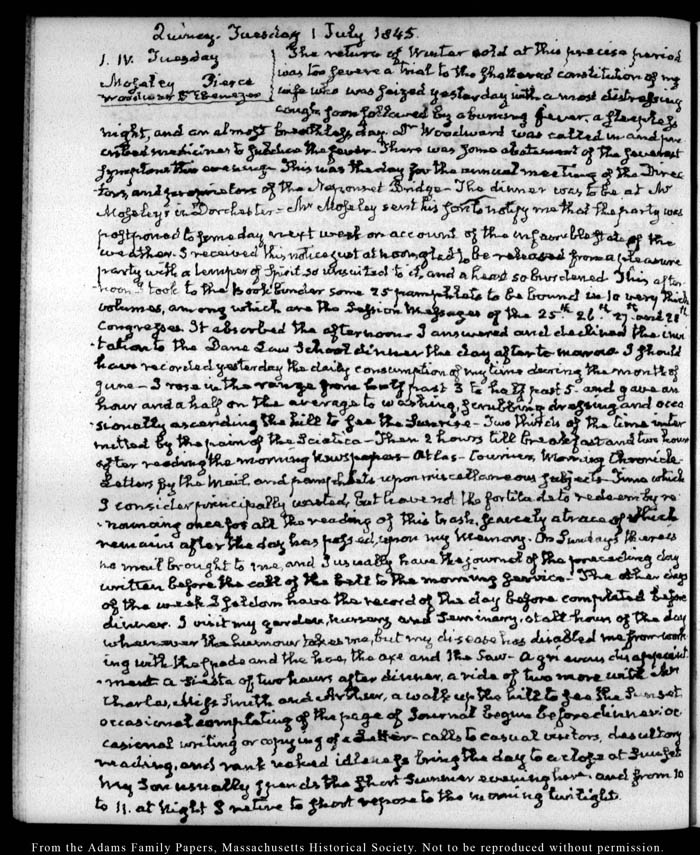 Quincy. Tuesday 1 July 1845.
1. IV. Tuesday
Moseley Pierce
Woodward D.r Ebenezer
The return of Winter cold at this precise period
was too severe a trial to the shattered constitution of my
wife who was seized yesterday with a most distressing
cough soon followed by a burning fever, a sleepless
night, and an almost breathless day. Dr Woodward was called in and pre
scribed medicines to subdue the fever. There was some abatement of the severest
symptoms this evening. This was the day for the annual meeting of the Direc
tors, and proprietors of the Neponset Bridge. The dinner was to be at Mr
Moseley's in Dorchester. Mr Moseley sent his son to notify me that the party was
postponed to some day next week on account of the unfavourable state of the
weather. I received this notice just at noon, glad to be released from a pleasure
party with a temper of spirit so unsuited to it, and a heart so burdened This after
noon I took to the book binder some 25 pamphlets to be bound in 10 very thick
volumes, among which are the Session Messages of the 25th 26th 27th and 28th
Congresses. It absorbed the afternoon. I answered and declined the invi
tation to the Dane Law School dinner the day after to-morrow. I should
have recorded yesterday the daily consumption of my time during the month of
June. I rose in the range from half past 3 to half past 5. and gave an
hour and a half on the average to washing, scrubbing dressing and occa
sionally ascending the hill to see the Sunrise. Two thirds of the time inter
mitted by the pain of the Sciatica. Then 2 hours till breakfast and two hours
after reading the morning Newspapers Atlas. Courier, Morning Chronicle
Letters by the Mail and pamphlets upon miscellaneous subjects. Time which
I consider principally wasted, but have not the fortitude to redeem by re
nouncing once for all the reading of this trash, scarcely a trace of which
remains after the day has passed, upon my Memory. On Sundays there is
no mail brought to me, and I usually have the journal of the preceding day
written before the call of the bell to the morning service. The other days
of the week I seldom have the record of the day before completed before
dinner. I visit my garden, nursery and Seminary, at all hours of the day
whenever the humour takes me, but my disease has disabled me from work
ing with the spade and the hoe, the axe and the Saw. A grievous disappoint
ment a siesta of two hours after dinner, a ride of two more with Mrs
Charles, Miss Smith and Arthur, a walk up the hill to see the Sunset
occasional completing of the page of Journal begun before dinner, oc
casional writing or copying of a Letter. calls to casual visitors, desultory
reading, and rank naked idleness bring the day to a close at Sunset
My Son usually spends the short Summer evening here. and from 10
to 11. at Night I retire to short repose to the morning twilight.
From the Adams Family Papers, Massachusetts Historical Society. Not to be reproduced without permission.